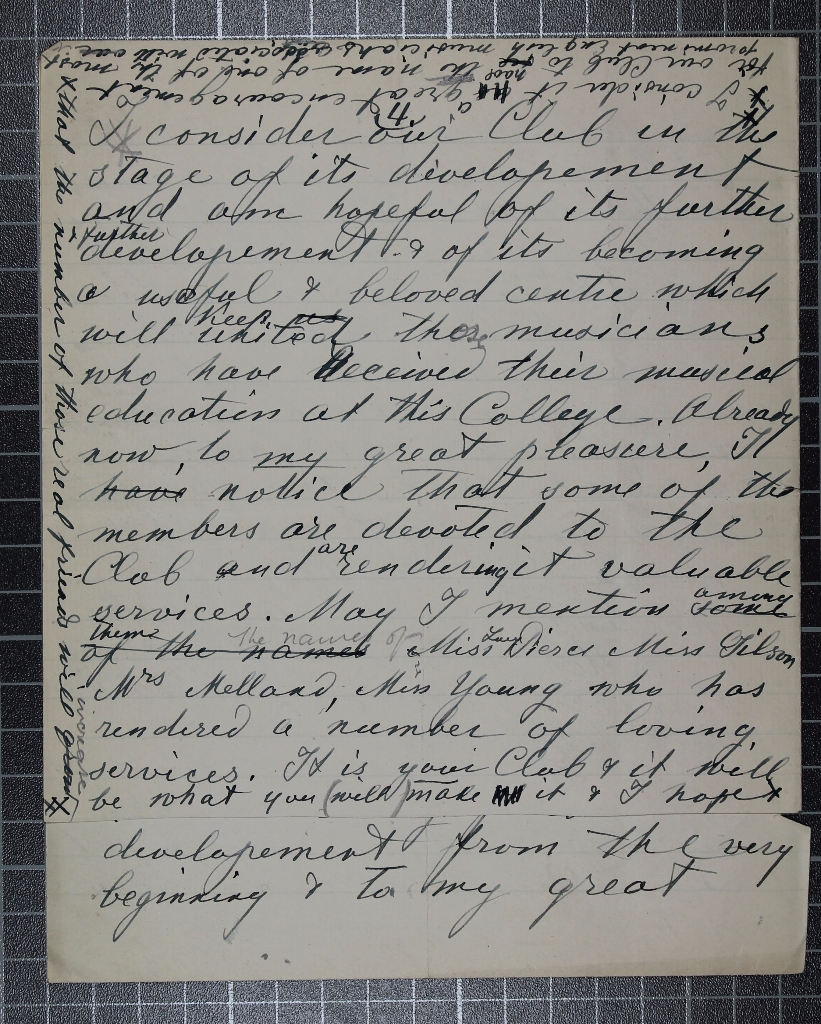 I consider it a great encouragement
for our Club to have the name of one of the most
prominent English musicians associated with our
I consider our Club in the
stage of its developement
and am hopeful of its further
further
developement & of its becoming
a useful & beloved centre which
keep us
will united those musicians
who have received their musical
education at this College. Already
now, to my great pleasure, I
have notice that some of the
members are devoted to the
are
Club and rendering it valuable
services. May I mention some
among
them the names of
of the names Miss Pierce Miss Gilson
Mrs Melland, Miss Young who has
rendered a number of loving
services. It is your Club & it will
be what you (will) make it & I hope
x that the number of those real friends will grow x
increase
developement from the very
beginning & to my great